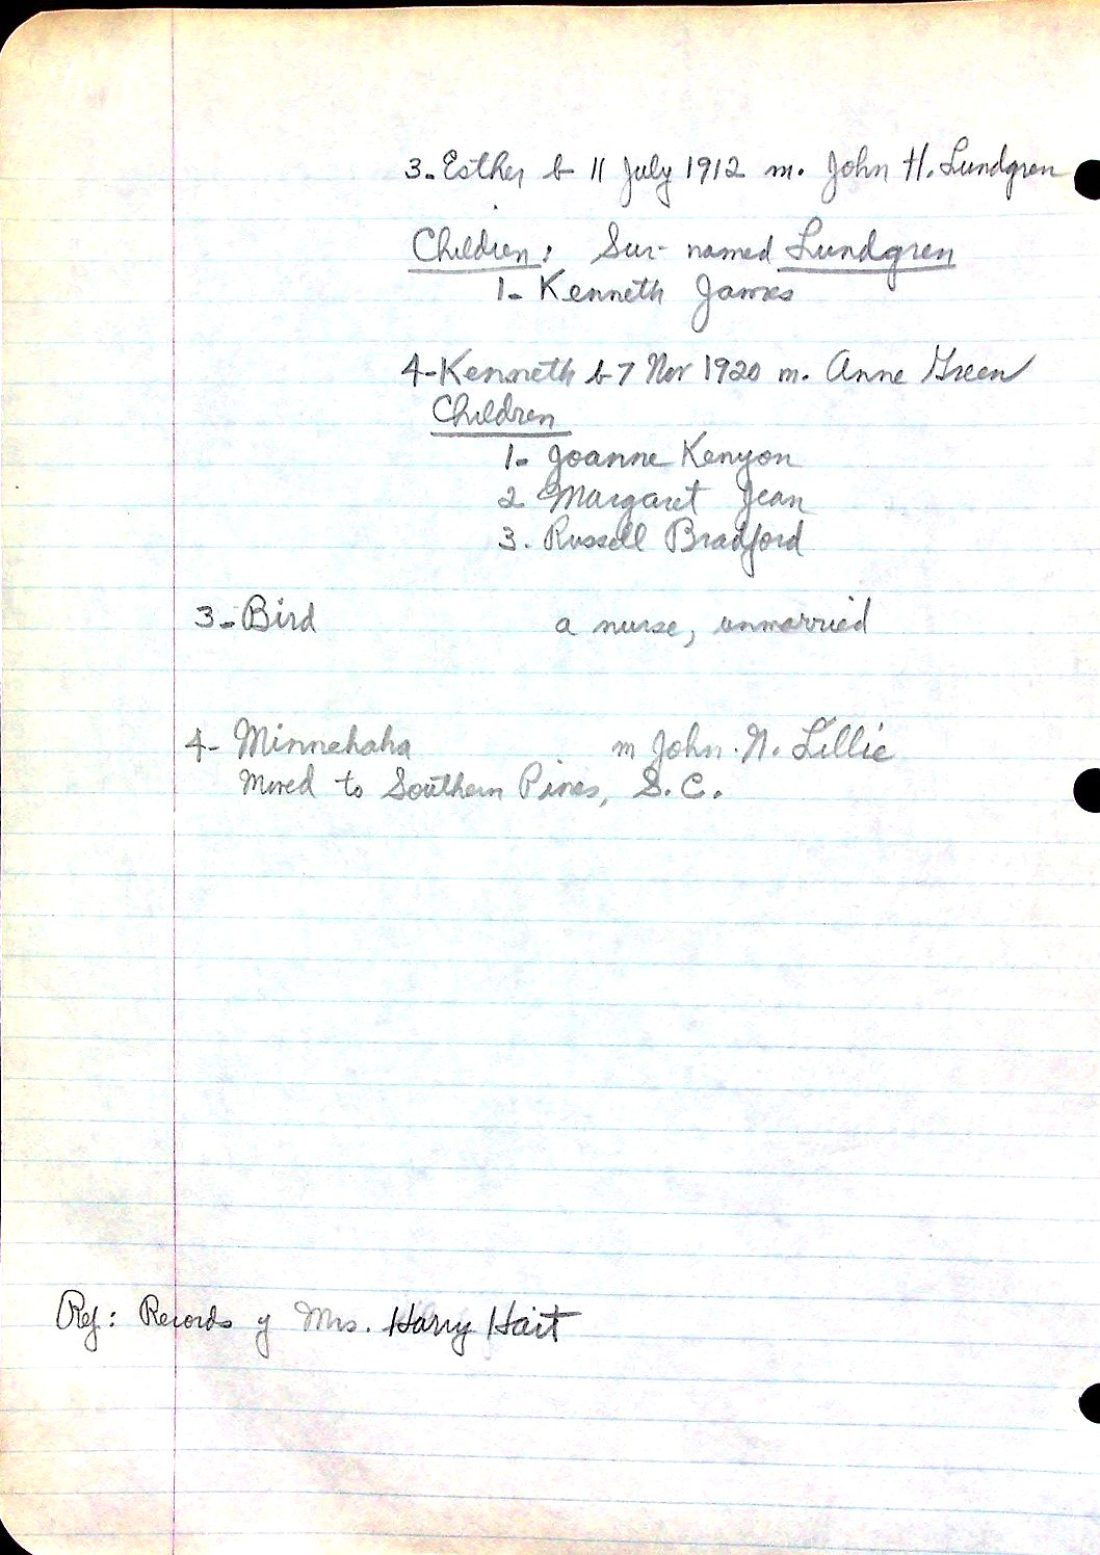 3. Esther b 11 July 1912 m. John H. Lundgren
Children: Sur-named Lundgren
1. Kenneth James
4-Kenneth b 7 Nov 1920 m. Anne Green
Children
1. Joanne Kenyon
2 Margaret Jean
3. Russell Bradford
3. Bird a nurse, unmarried
4- Minnehaha m John N. Lillie
Moved to Southern Pines, S.C.
Ref: Records of Mrs. Harry Hait